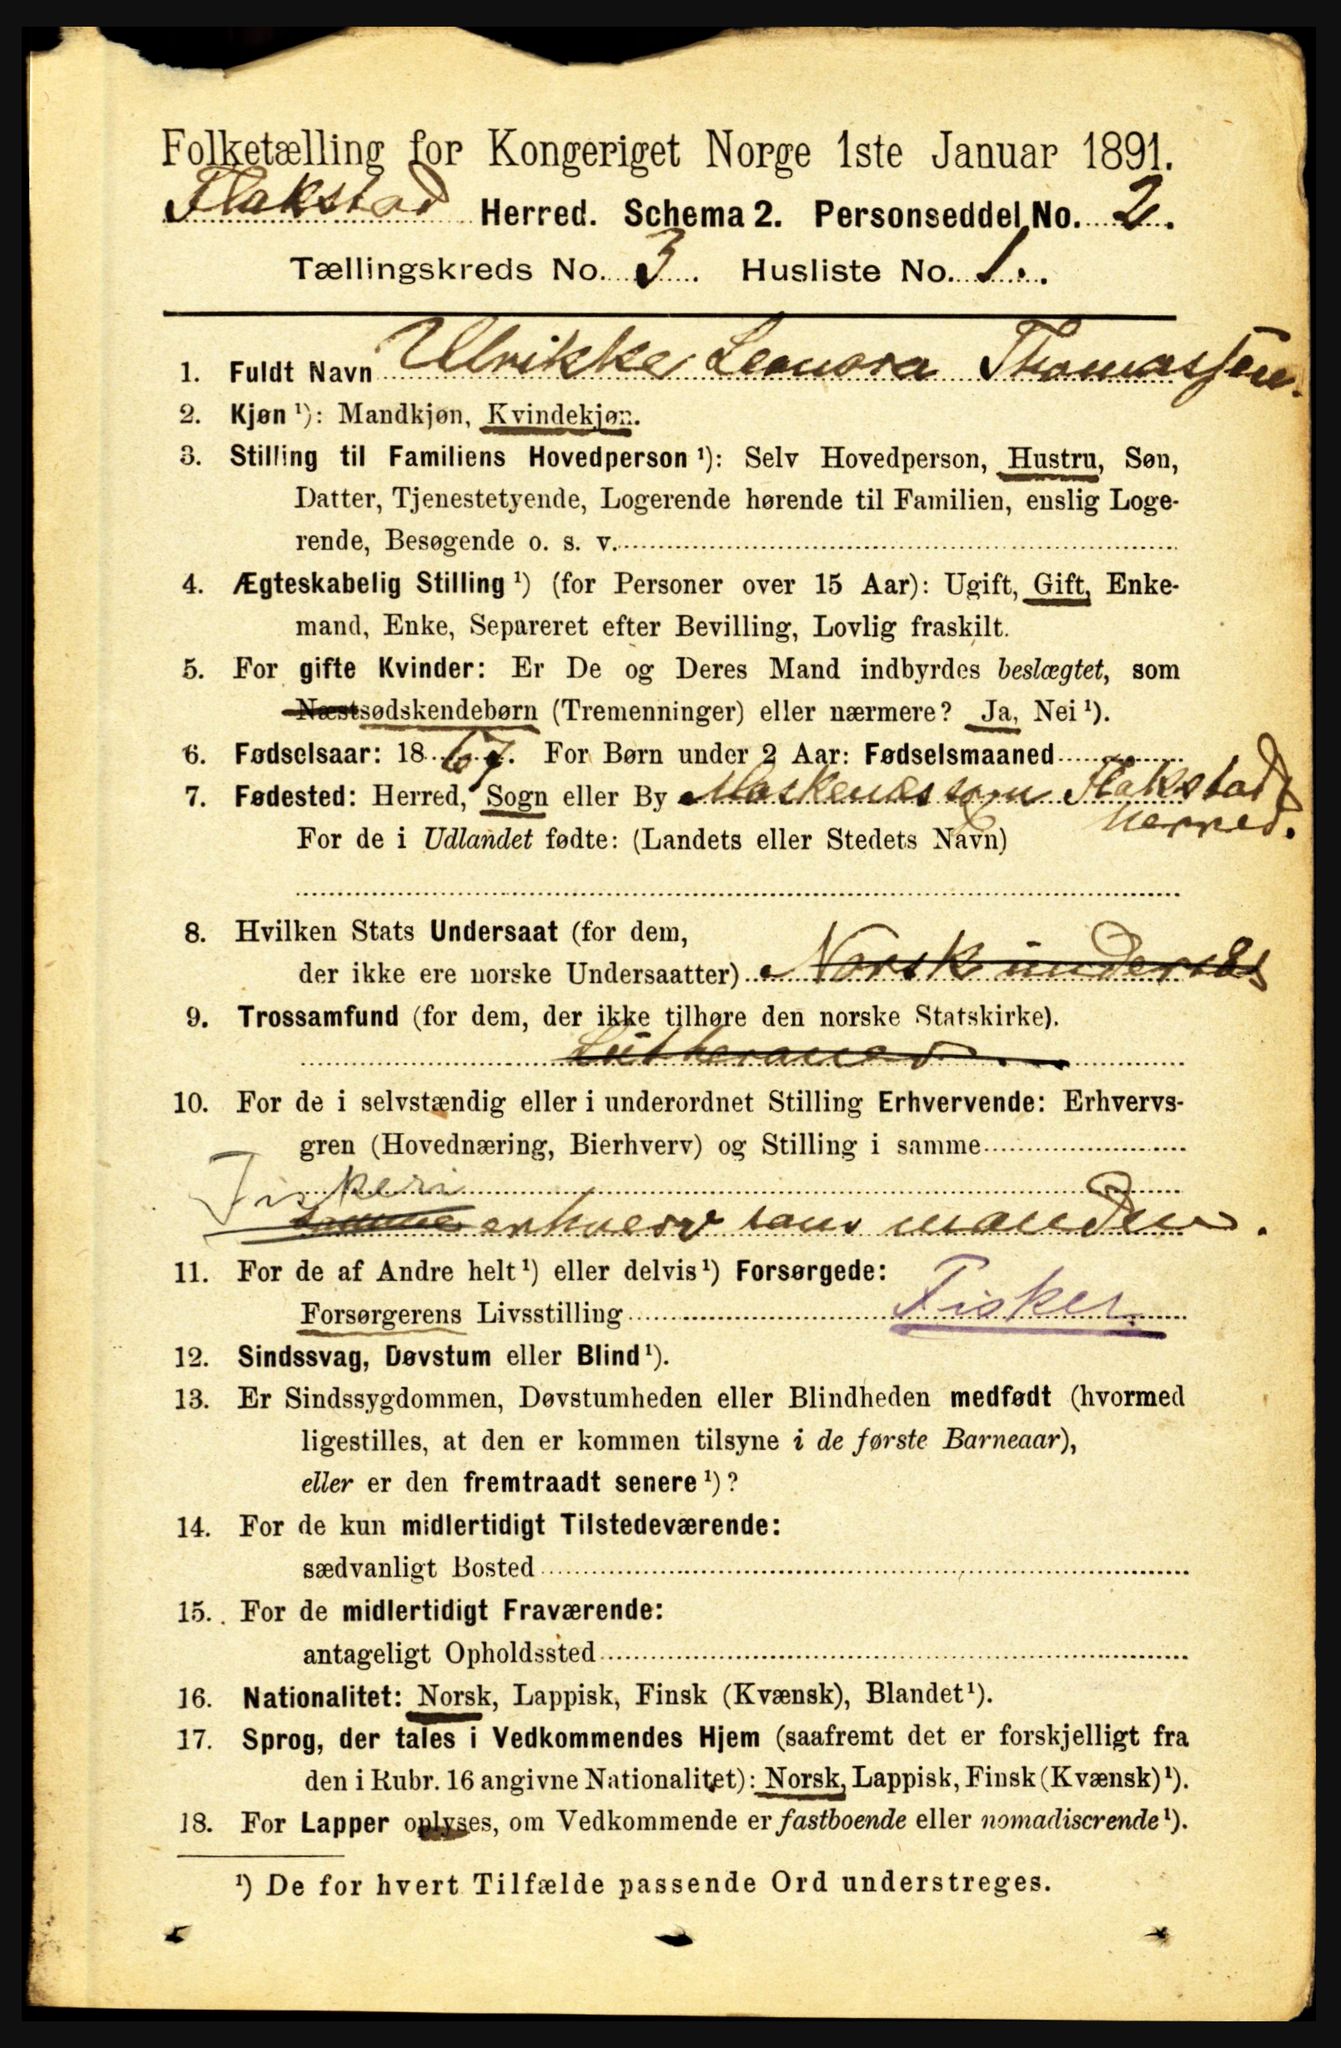 Folketælling for Kongeriget Norge 1ste Januar 1891.
Flakstad Herred. Schema 2. Personseddel No. 2.
Tællingskreds No. 3. Husliste No. 1.
1. Fuldt Navn Ulrikke Leonora Thomassen.
2. Kjøn ¹): Mandkjøn, Kvindekjøn.
3. Stilling til Familiens Hovedperson ¹): Selv Hovedperson, Hustru, Søn,
Datter, Tjenestetyende, Logerende hørende til Familien, enslig Loge-
rende, Besøgende o. s. v.
4. Ægteskabelig Stilling ¹) (for Personer over 15 Aar): Ugift, Gift, Enke-
mand, Enke, Separeret efter Bevilling, Lovlig fraskilt.
5. For gifte Kvinder: Er De og Deres Mand indbyrdes beslægtet, som
Næstsødskendebørn (Tremenninger) eller nærmere? Ja, Nei ¹).
6. Fødselsaar: 1867. For Børn under 2 Aar: Fødselsmaaned
7. Fødested: Herred, Sogn eller By Moskenæs sogn Flakstad
Herred.
For de i Udlandet fødte: (Landets eller Stedets Navn)
8. Hvilken Stats Undersaat (for dem,
der ikke ere norske Undersaatter) Norsk undersåt
9. Trossamfund (for dem, der ikke tilhøre den norske Statskirke).
Lutheraner
10. For de i selvstændig eller i underordnet Stilling Erhvervende: Erhvervs-
gren (Hovednæring, Bierhverv) og Stilling i samme
Fiskeri
samme erhverv som manden.
11. For de af Andre helt ¹) eller delvis ¹) Forsørgede:
Forsørgerens Livsstilling Fisker
12. Sindssvag, Døvstum eller Blind ¹).
13. Er Sindssygdommen, Døvstumheden eller Blindheden medfødt (hvormed
ligestilles, at den er kommen tilsyne i de første Barneaar),
eller er den fremtraadt senere ¹)?
14. For de kun midlertidigt Tilstedeværende:
sædvanligt Bosted
15. For de midlertidigt Fraværende:
antageligt Opholdssted
16. Nationalitet: Norsk, Lappisk, Finsk (Kvænsk), Blandet ¹).
17. Sprog, der tales i Vedkommendes Hjem (saafremt det er forskjelligt fra
den i Rubr. 16 angivne Nationalitet): Norsk, Lappisk, Finsk (Kvænsk) ¹).
18. For Lapper oplyses, om Vedkommende er fastboende eller nomadiserende ¹).
¹) De for hvert Tilfælde passende Ord understreges.